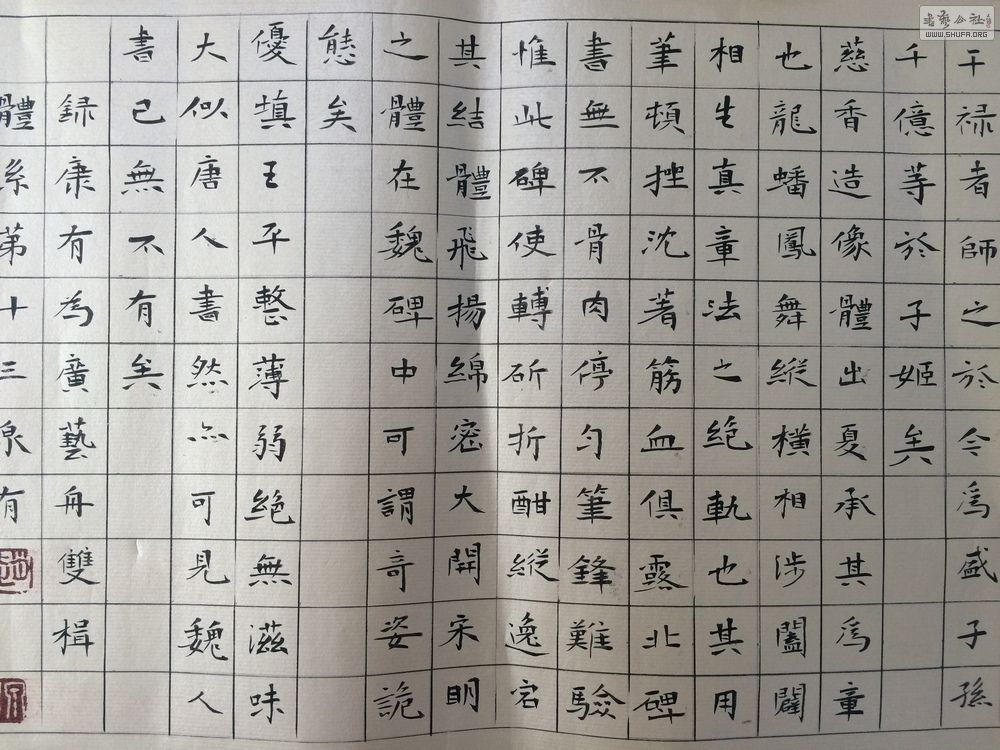 書藝公社
WWW.SHUFA.ORG
干禄者師之於今爲盛子孫
千億等於子姬矣
慈香造像體出夏承其爲章
也龍蟠鳳舞縱橫相涉闔闢
相生真章法之絶軌也其用
筆頓挫沈著筋血俱露北碑
書無不骨肉停勻筆鋒難驗
惟此碑使轉斫折酣縱逸宕
其結體飛揚綿密大開宋明
之體在魏碑中可謂奇姿詭
態矣
優填王平整薄弱絶無滋味
大似唐人書然亦可見魏人
書已無不有矣
録康有為廣藝舟雙楫
體系第十三泉有